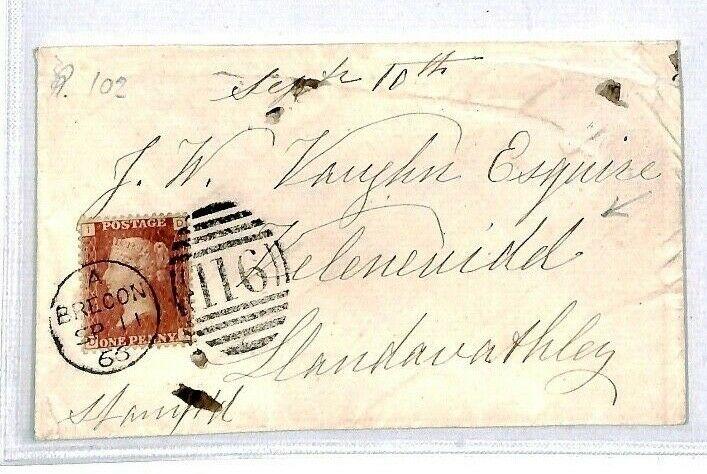 P. 102
Sept 10th
J. W. Vaughn Esquire
Velenewidd
Llandavathley
I D
POSTAGE
ONE PENNY
A
BRECON
SP 11
65
116